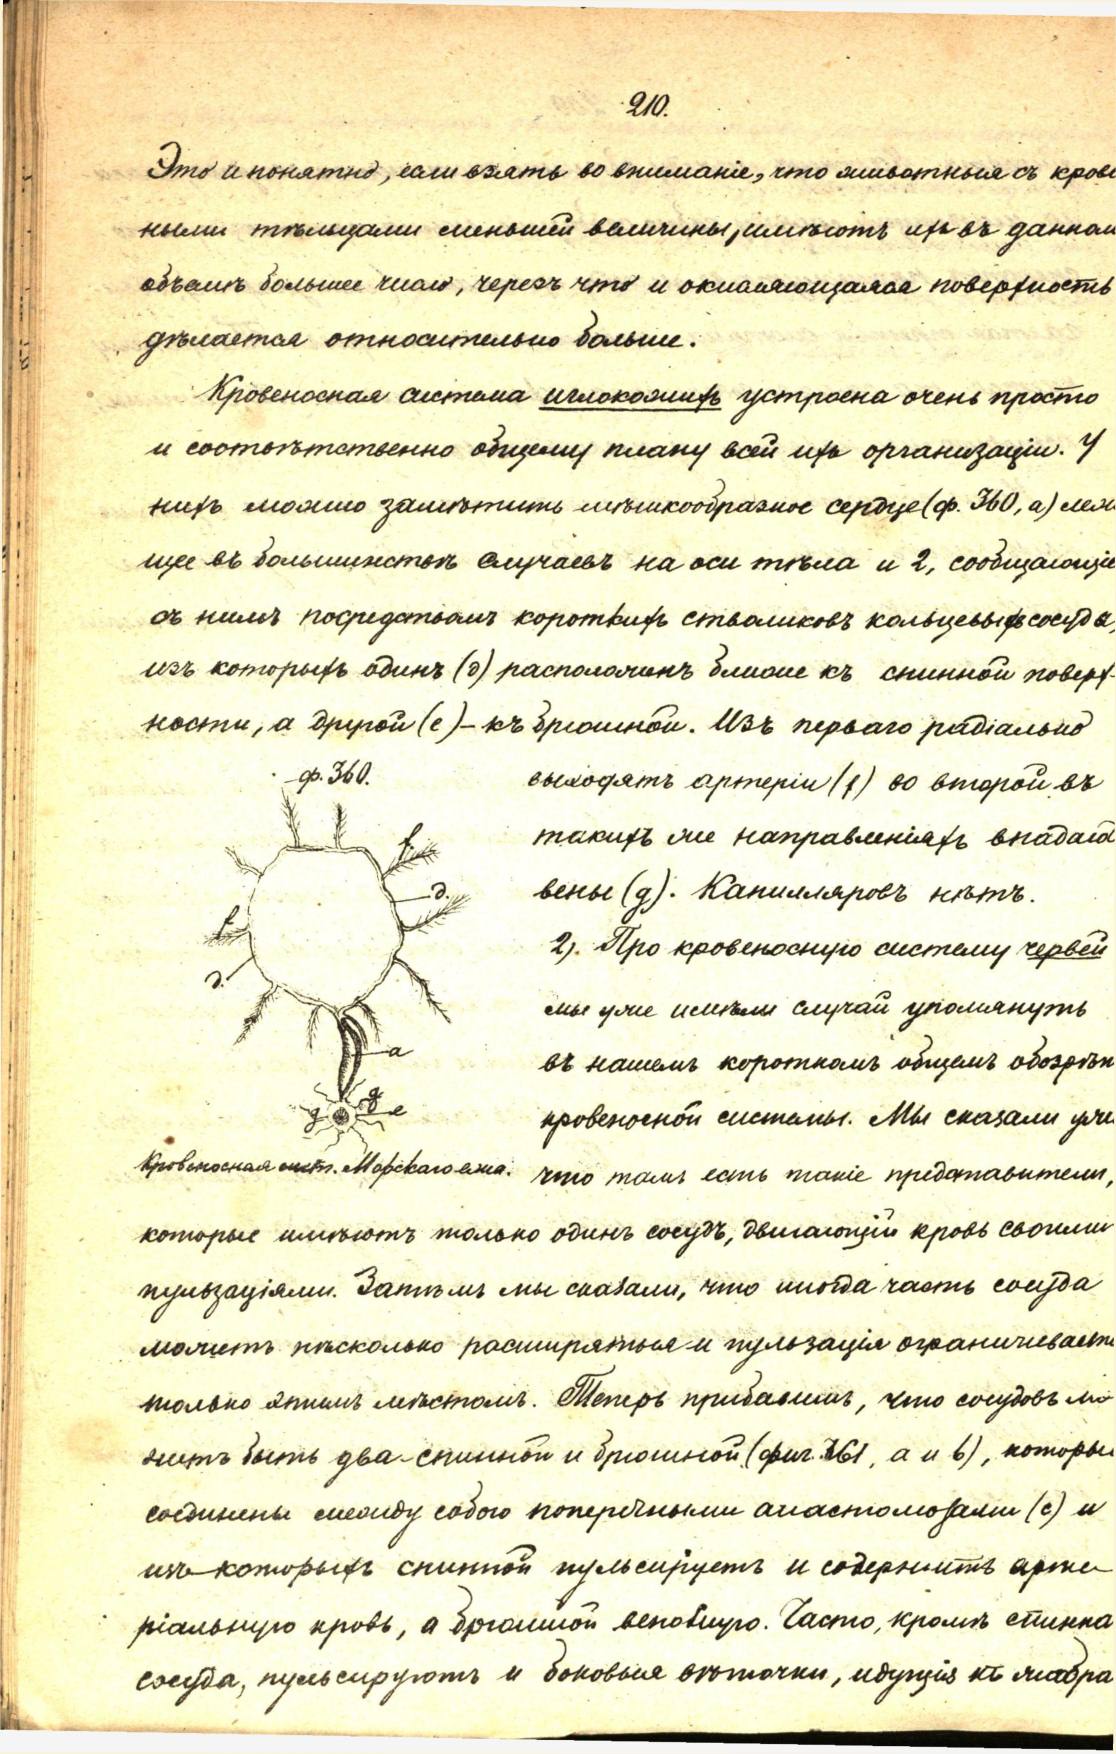 210.
Это и понятно, если взять во вниманіе, что животныя съ крове
ными тѣльцами меньшей величины, имѣютъ ихъ въ данном
объемѣ большее число, черезъ что и окисляющаяся поверхность
дѣлается относительно больше.
Кровеносная система иглокожихъ устроена очень просто
и соотвѣтственно общему плану всей ихъ организаціи. У
нихъ можно замѣтить мѣшкообразное сердце (ф. 360, а) леж
щее въ большинствѣ случаевъ на оси тѣла и 2, сообщающіе
съ нимъ посредствомъ короткихъ стволиковъ кольцевыхъ сосуда,
изъ которыхъ одинъ (д) расположенъ ближе къ спинной поверх-
ности, а другой (е) – къ брюшной. Изъ перваго радіально
ф. 360.
выходятъ артеріи (f) во второй въ
такихъ же направленіяхъ впадаю
вены (g). Капилляровъ нѣтъ.
2). Про кровеносную систему червей
мы уже имѣли случай упомянуть
въ нашемъ короткомъ общемъ обозрѣн
кровеносной системы. Мы сказали уже
что тамъ есть такіе представители,
f
д.
f
д.
a
g
g
e
Кровеносная сист. Морского ежа.
которые имѣютъ только одинъ сосудъ, двигающій кровь своими
пульзаціями. Затѣмъ мы сказали, что иногда часть сосуда
можетъ нѣсколько расширяться и пульзація ограничивается
только этимъ мѣстомъ. Теперь прибавимъ, что сосудовъ мо
жетъ быть два – спинной и брюшной (фиг. 361, а и b), которы
соединены между собою поперечными анастомозами (с) и
изъ которыхъ спинной пульсируетъ и содержитъ арте-
ріальную кровь, а брюшной венозную. Часто, кромѣ спинна
сосуда, пульсируютъ и боковыя вѣточки, идущія къ жабра